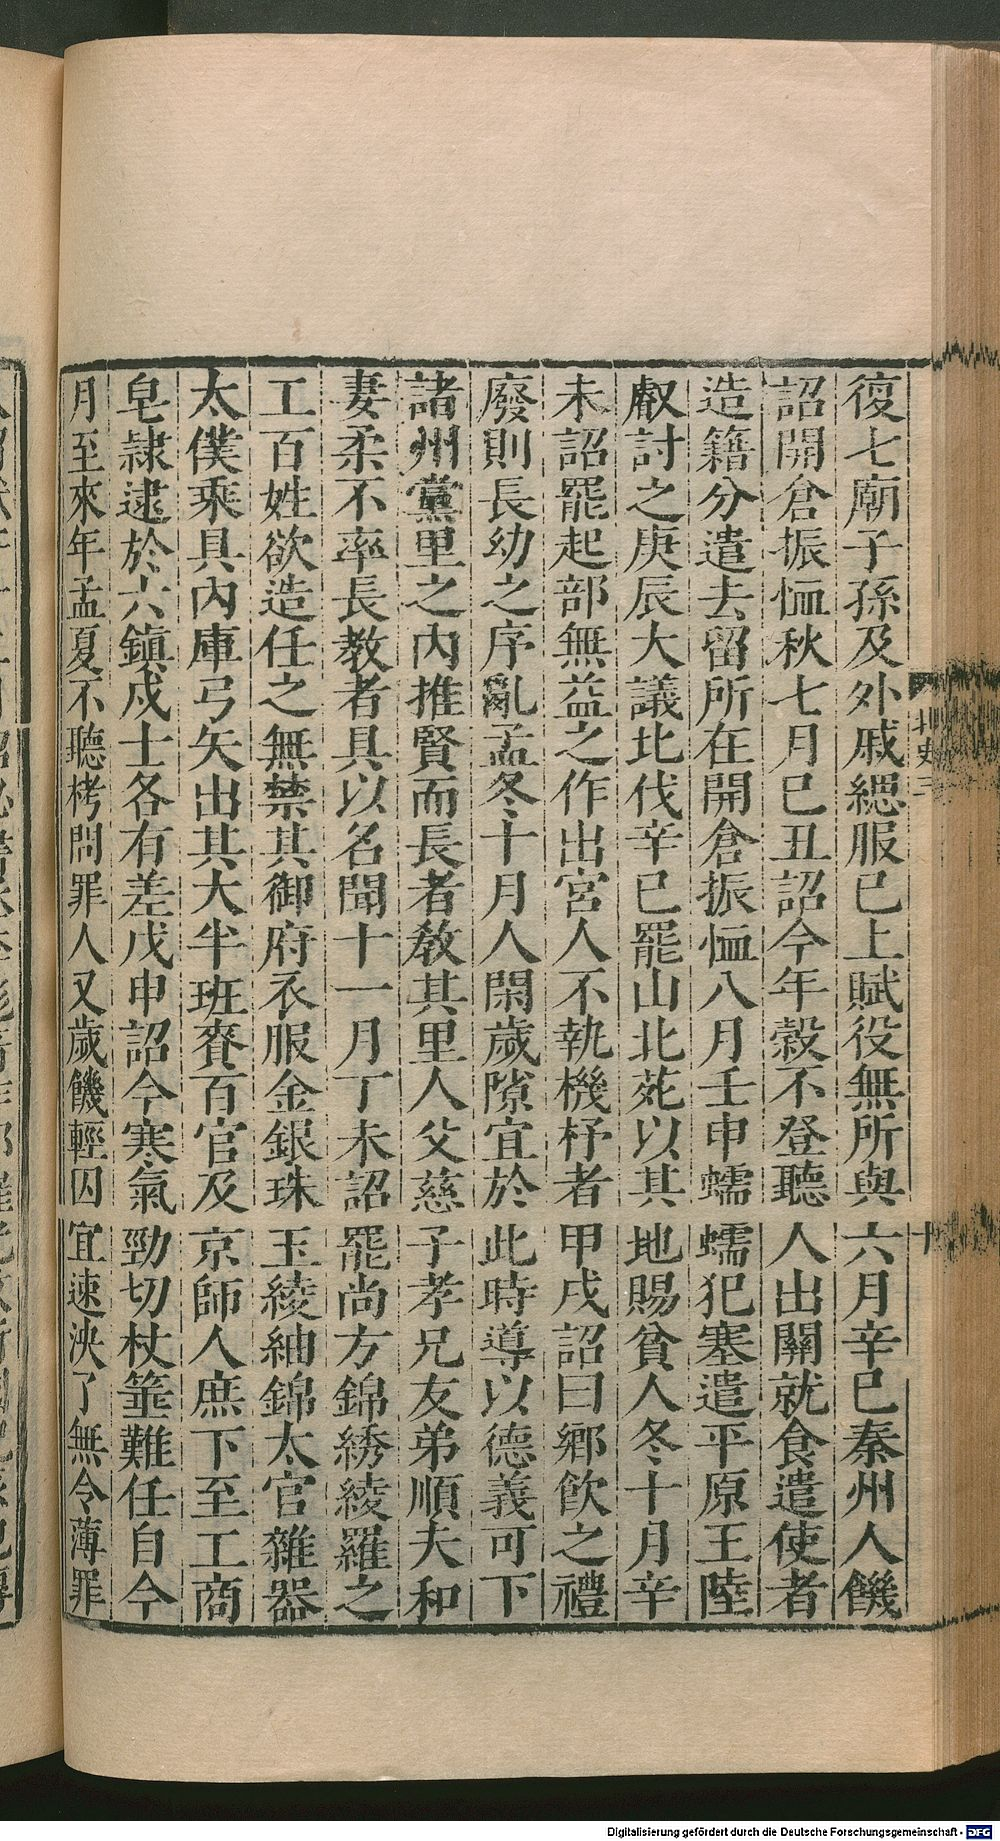 復七廟子孫及外戚緦服已上賦役無所與六月辛巳秦州人饑
詔開倉振恤秋七月巳丑詔今年穀不登聽人出關就食遣使者
造籍分遣去留所在開倉振恤八月壬申蠕蠕犯塞遣平原王陸
叡討之庚辰大議北伐辛巳罷山北苑以其地賜貧人冬十月辛
未詔罷起部無益之作出宮人不執機杼者甲戌詔曰鄉飲之禮
廢則長幼之序亂孟冬十月人閑歲隙宜於此時導以德義可下
諸州黨里之內推賢而長者敎其里人父慈子孝兄友弟順夫和
妻柔不率長教者具以名聞十一月丁未詔罷尚方錦綉綾羅之
工百姓欲造任之無禁其御府衣服金銀珠玉綾紬錦太官雜器
太僕乘具內庫弓矢出其大半班賚百官及京師人庶下至工商
皂隷逮於六鎮戍士各有差戊申詔今寒氣勁切杖箠難任自今
月至來年孟夏不聽栲問罪人又歲饑輕囚宜速決了無令薄罪
北史三
十
Digitalisierung gefördert durch die Deutsche Forschungsgemeinschaft - DFG